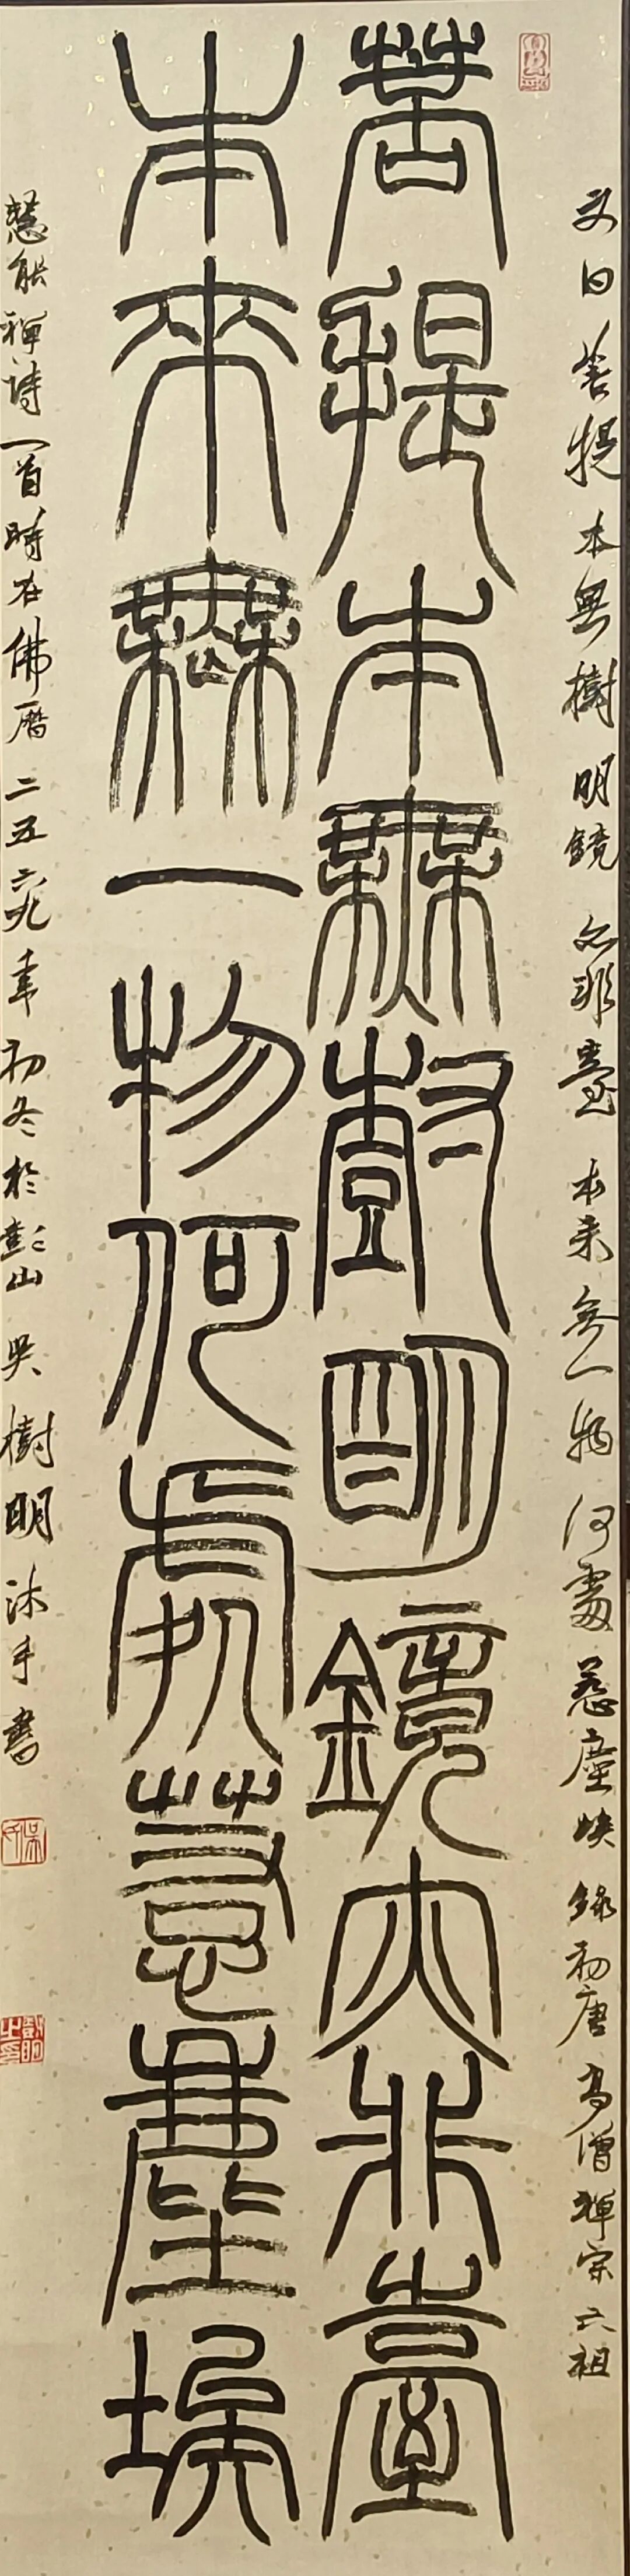 文曰菩提本無樹明鏡亦非臺本來無一物何處惹塵埃錄初唐高僧禪宗六祖
菩提本無樹明鏡亦非臺
本來無一物何處惹塵埃
慧能禪詩一首時在佛曆二五六九年初冬於彭山吳樹明沐手書